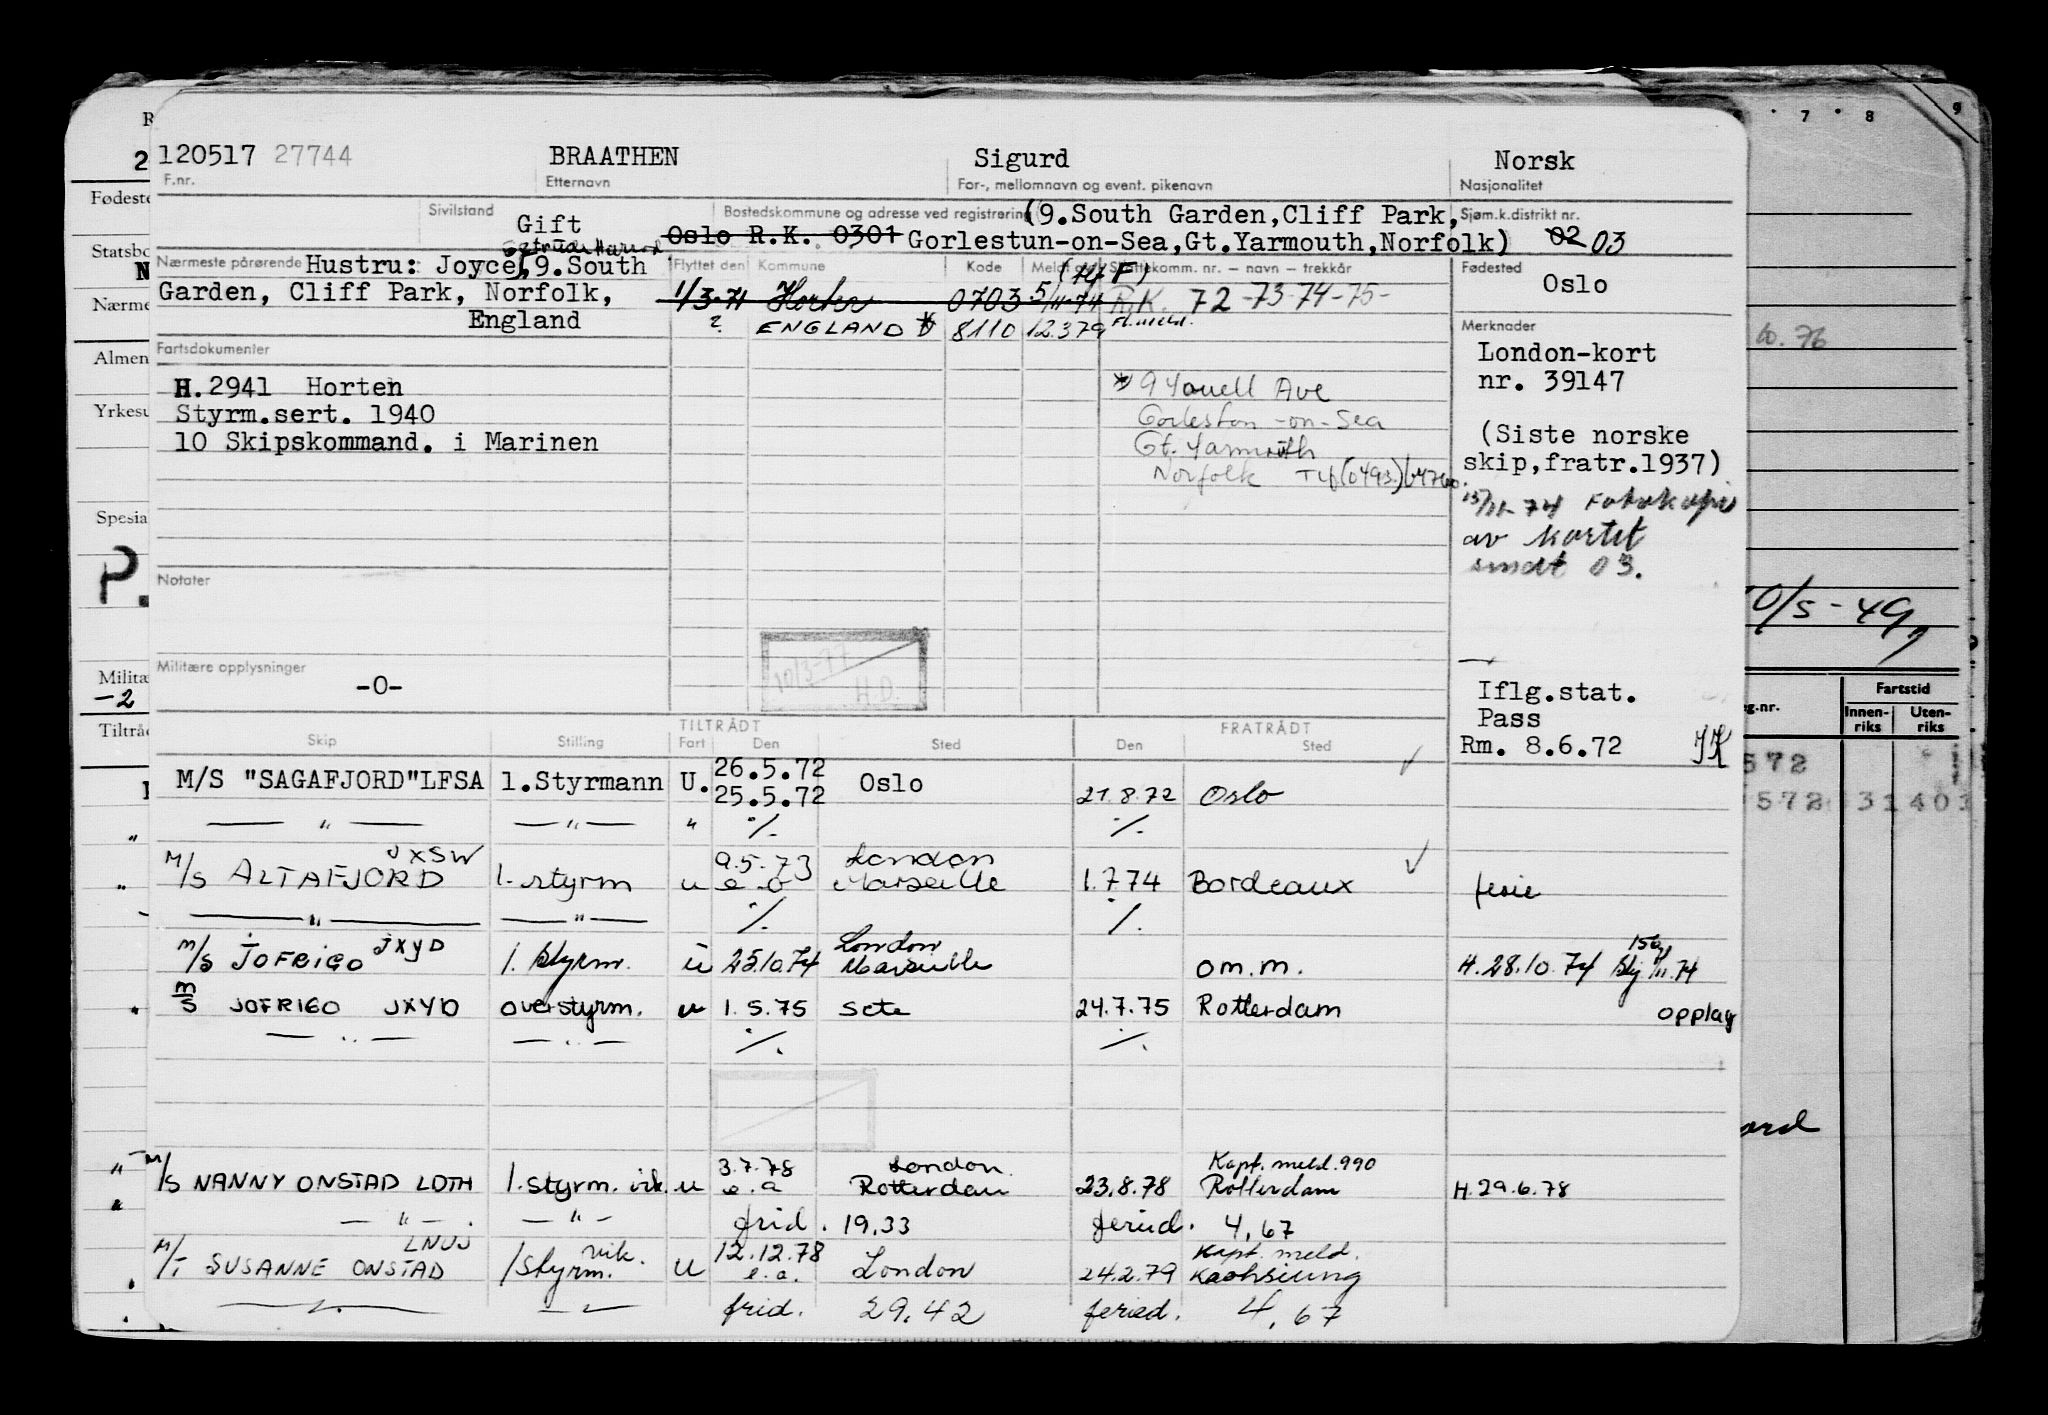 120517 27744 BRAATHEN Sigurd Norsk
F.nr. Etternavn For-, mellomnavn og event. pikenavn Nasjonalitet
Sivilstand Gift Bostedskommune og adresse ved registrering (9.South Garden,Cliff Park, Sjøm.k.distrikt nr.
Oslo R.K. 0301 Gorlestun-on-Sea,Gt.Yarmouth,Norfolk) 02 03
Nærmeste pårørende Hustru: Joyce, 9.South Flyttet den Kommune Kode Fødested
Garden, Cliff Park, Norfolk, Oslo
England
1/3-71 Horten 0703 5/11-74 R.K. 72-73-74-75-
? ENGLAND * 8110 12.379 Fl.meld.
Merknader
London-kort
nr. 39147
(Siste norske
skip,fratr.1937)
15/11-74 Fotokopi
av kortet
sendt 03.
Fartsdokumenter
H.2941 Horten
Styrm.sert. 1940
10 Skipskommand. i Marinen
* 9 Youell Ave
Gorleston-on-Sea
Gt. Yarmouth
Norfolk
Notater
10/3-77
H.D.
Militære opplysninger
-0-
Iflg.stat.
Pass
Rm. 8.6.72
TILTRÅDT FRATRÅDT
Skip Stilling Fart Den Sted Den Sted
M/S "SAGAFJORD"LFSA 1.Styrmann U. 26.5.72
25.5.72 Oslo 21.8.72 Oslo
— " — — " — " %. %.
M/S ALTAFJORD JXSW 1. styrm u 9.5.73 London
e.a Marseille 1.7.74 Bordeaux ferie
— " — — " — %. %.
M/S JOFRIGO JXYD 1. styrm. u 25.10.74 London
Marseille om.m. H.28.10.74
M/S JOFRIGO JXYD overstyrm. u 1.5.75 Sete 24.7.75 Rotterdam opplag
— " — — " — %. %.
M/S NANNY ONSTAD LOTH 1.styrm. vik. u 3.7.78 London
e.a Rotterdam 23.8.78 Kapt. meld. 990
Rotterdam H.29.6.78
— " — — " — frid. 19.33 feried. 4,67
M/T SUSANNE ONSTAD LNUJ 1styrm. vik. u 12.12.78
e.a. London 24.2.79 Kapt. meld.
Kaohsiung
— " — — " — frid. 29.42 feried. 4,67
Fødeste
Statsbo
Nærme
Almen
Yrkesu
Spesia
P.
Milit
-2
Tiltråd
7 8 9
10/5-49,
g.nr. Fartstid
Innen-
riks
Uten-
riks
572
572 31401